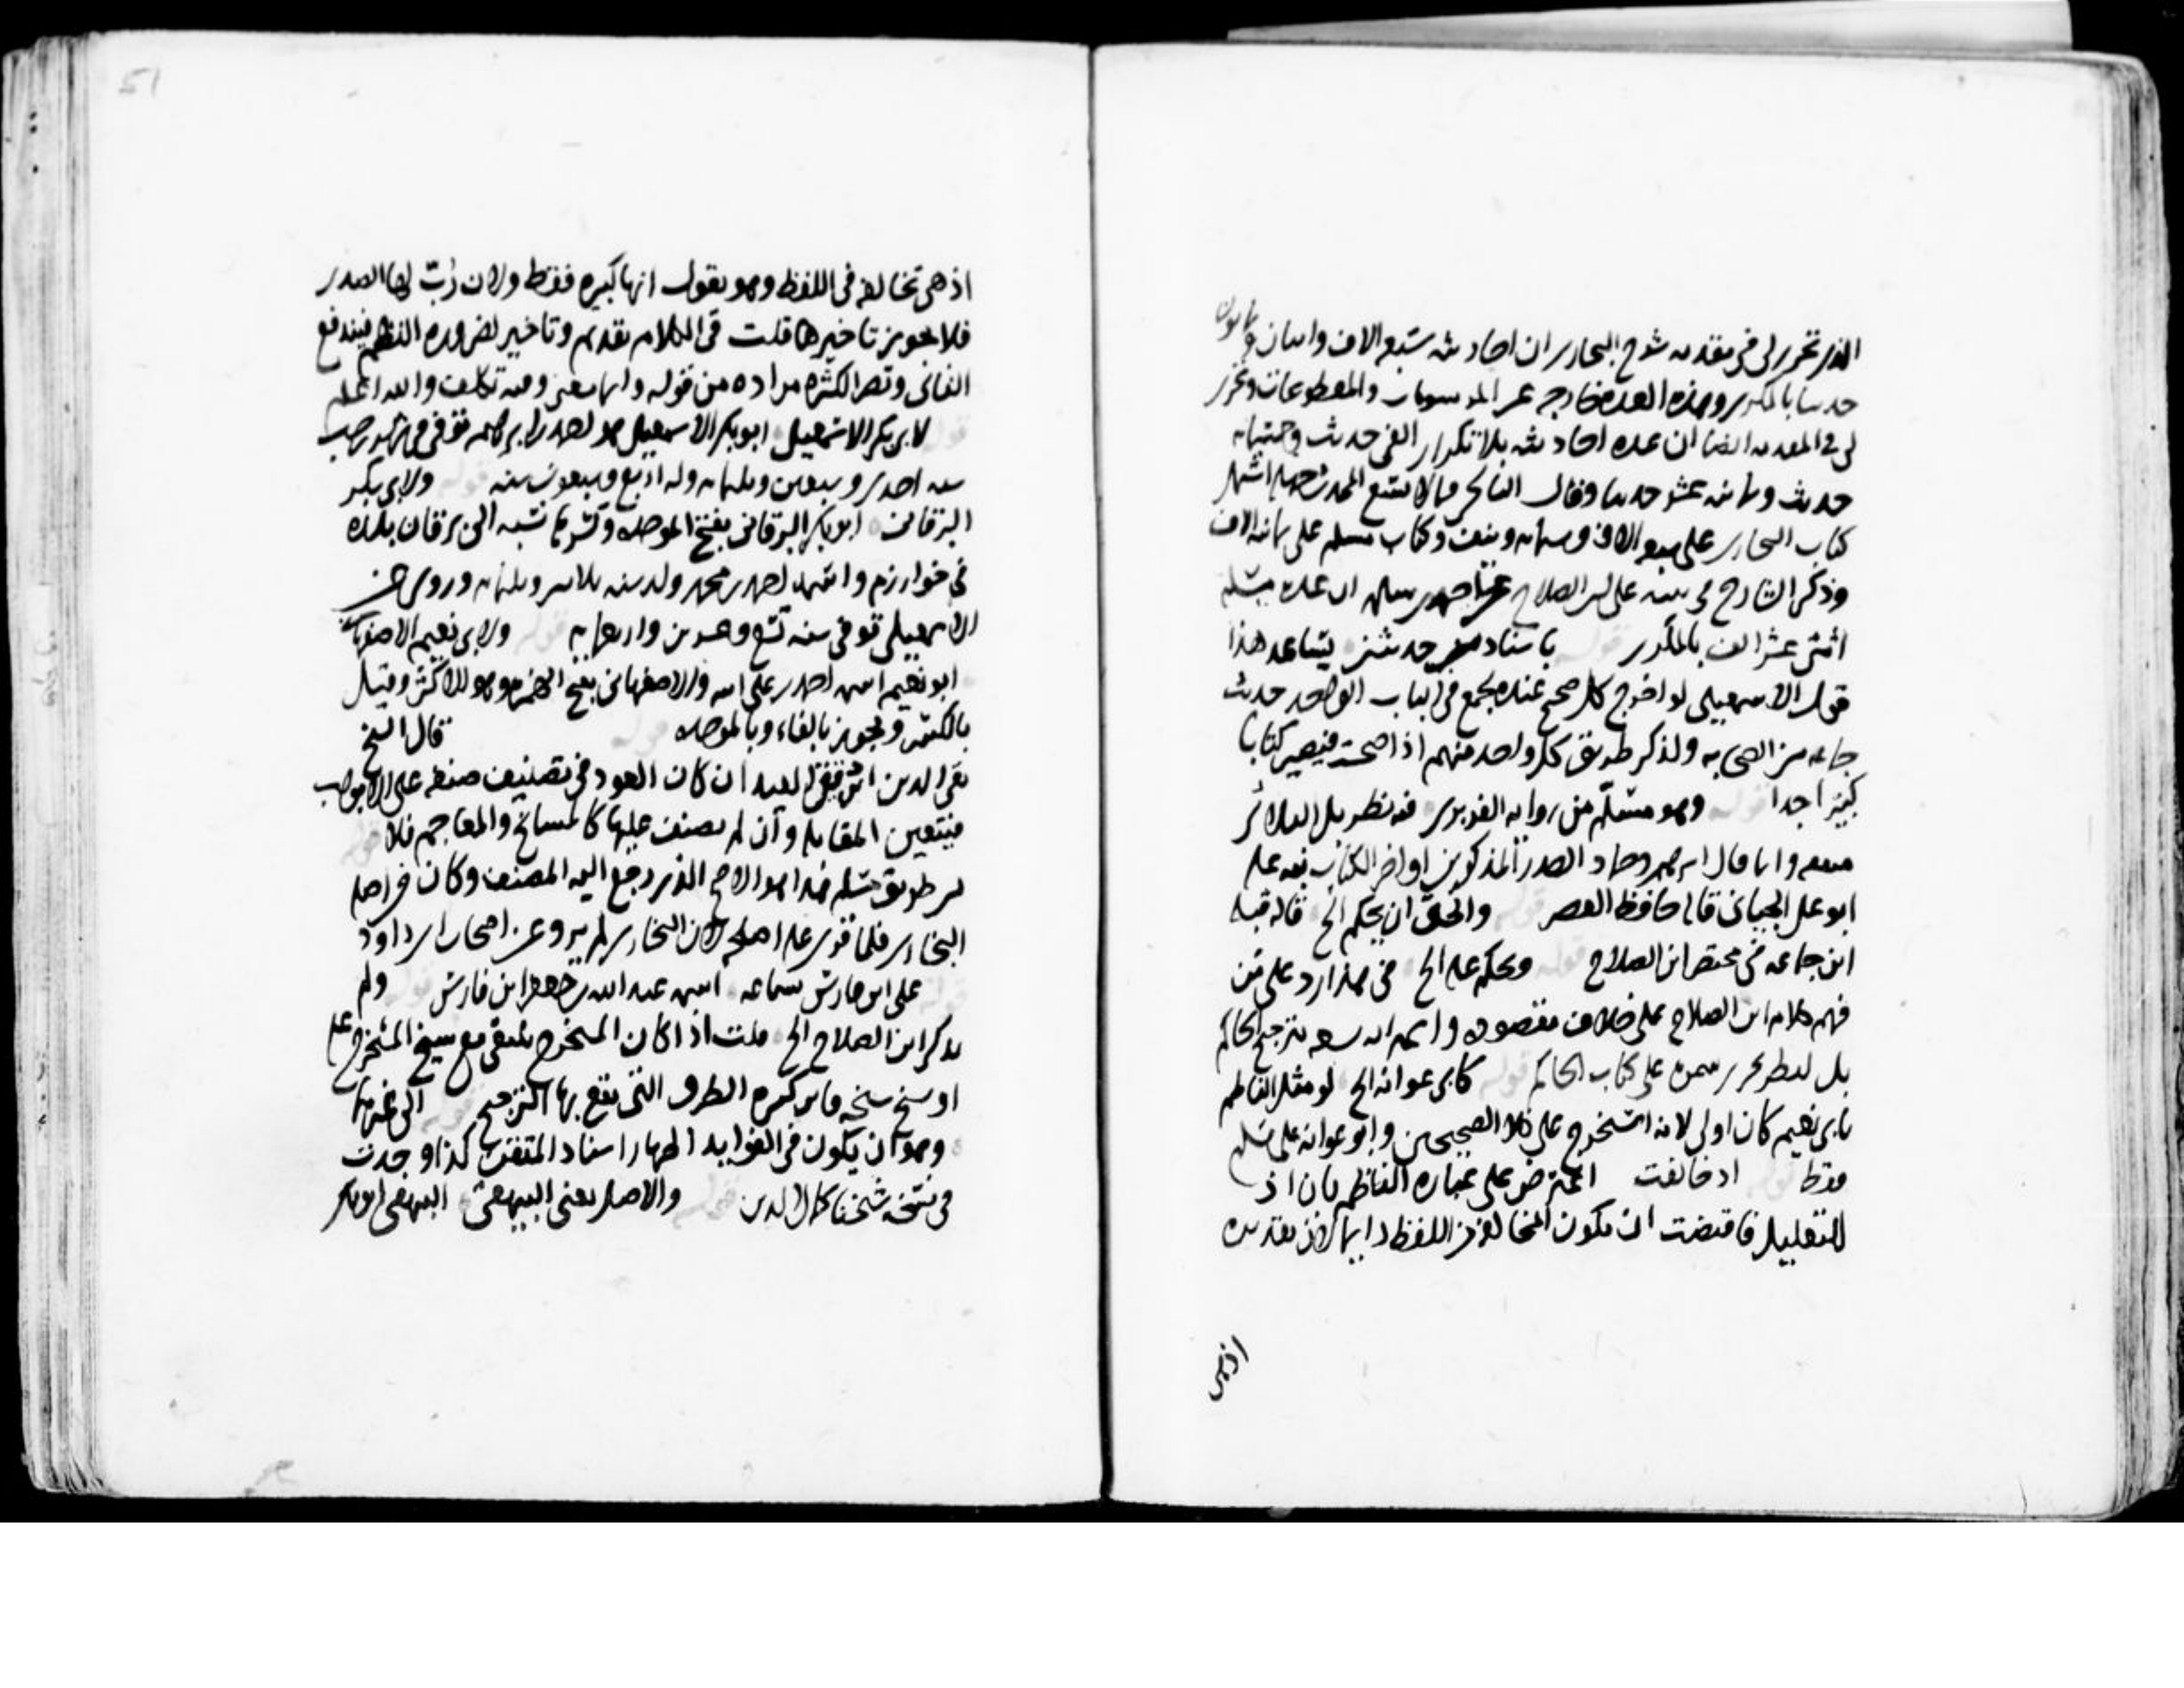 الذى تحرر لى فى مقدمه شرح البخارى ان احاديثه سبعه الاف ومايتان و
حديثا بالمكرر وهذه العده خارجه عن الموقوفات والمقطوعات وتحرر
لى فى المقدمه ايضا ان عده احاديثه بلا تكرار الفى حديث وخمسمايه
حديث وثمانيه عشر حديثا وقال الحاكم
كتاب البخارى على سبعه الاف وستمايه ونيف وكتاب مسلم على ثمانيه الاف
وذكر الشارح فى نكته على ابن الصلاح عن احمد بن سلمه ان عده مسلم
اثنى عشر الف بالمكرر قوله باسناد حديثين يساعد هذا
قول الاسمعيلى لو اخرج كل صحيح عنده لجمع فى الباب الواحد حديث
جماعه من الصحابه ولذكر طريق كل واحد منهم اذا صحت فيصير كتابا
كبيرا جدا قوله وهو مسلم من روايه الفربرى فيه نظر بل الثلاثه
وحماد المذكورين اواخر الكتاب
ابو على الجيانى قال حافظ العصر قوله والحق ان يحكم الخ قاله قبله
ابن جماعه فى مختصر ابن الصلاح قوله وبحكم عليه الخ فى هذا رد على من
فهم كلام ابن الصلاح على خلاف مقصوده بترجيح الحاكم
بل على كتاب الحاكم قوله كابى عوانه الخ لو مثل الناظم
بابى نعيم كان اولى لانه استخرج على كلا الصحيحين وابو عوانه على مسلم
فقط قوله اذ خالفت اعترض على عباره الناظم بان اذ
للتعليل فاقتضت ان تكون المخالفه فى اللفظ دايما لان تقديره
اذ هى
51
اذ هى تخالفه فى اللفظ وهو يقول انها كثيره فقط ولان رُبّ لها الصدر
فلا يجوز تاخيرها قلت فى الكلام تقديم وتاخير لضروره النظم فيندفع
الثانى وتصير الكثره مراده من قوله وربما وفيه تكلف والله اعلم
قوله لابى بكر الاسمعيلى ابو بكر الاسمعيلى هو احمد بن ابرهيم توفى فى رجب
سنه احدى وسبعين وثلثمايه وله اربع وسبعون سنه قوله ولابى بكر
البرقانى ابو بكر البرقانى بفتح الموحده وكسرها نسبه الى برقان بلده
فى خوارزم واسمه احمد بن محمد ولد سنه وثلثمايه وروى عن
الاسمعيلى توفى سنه وعشرين واربعمايه قوله ولابى نعيم الاصفهانى
ابو نعيم اسمه احمد بن عبد الله والاصفهانى بفتح الهمزه وهو للاكثر وقيل
بالكسر ويجوز بالفاء وبالموحده قوله قال الشيخ
تقى الدين ابن دقيق العيد ان كان العود فى تصنيف صنف على الابواب
فيتعين المقابله وان لم يصنف عليها كالمشايخ والمعاجم فلا قوله
من طريق مسلم هذا هو الاصح الذى رجع اليه المصنف وكان فى اصله
البخارى فلما قرى عليه اصلحه لان البخارى لم يرو عن اصحاب ابى داود
على ابن فارس سماعه اسمه عبد الله بن جعفر ابن فارس قوله ولم
يذكر ابن الصلاح الخ قلت اذا كان المستخرج يلتقى مع شيخ المستخرج عليه
او شيخ شيخه كثره الطرق التى يقع بها الترجيح قوله الى غيرها
وهو ان يكون فى الفوايد اظهار اسناد المتفق كذا وجدت
فى نسخه شيخنا كمال الدين قوله والاصل يعنى البيهقى البيهقى ابو بكر